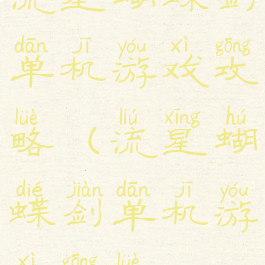 流星蝴蝶剑
dān jī yóu xì gōng
单机游戏攻
lüè liú xīng hú
略（流星蝴
dié jiàn dān jī yóu
蝶剑单机游
xì gōng lüè